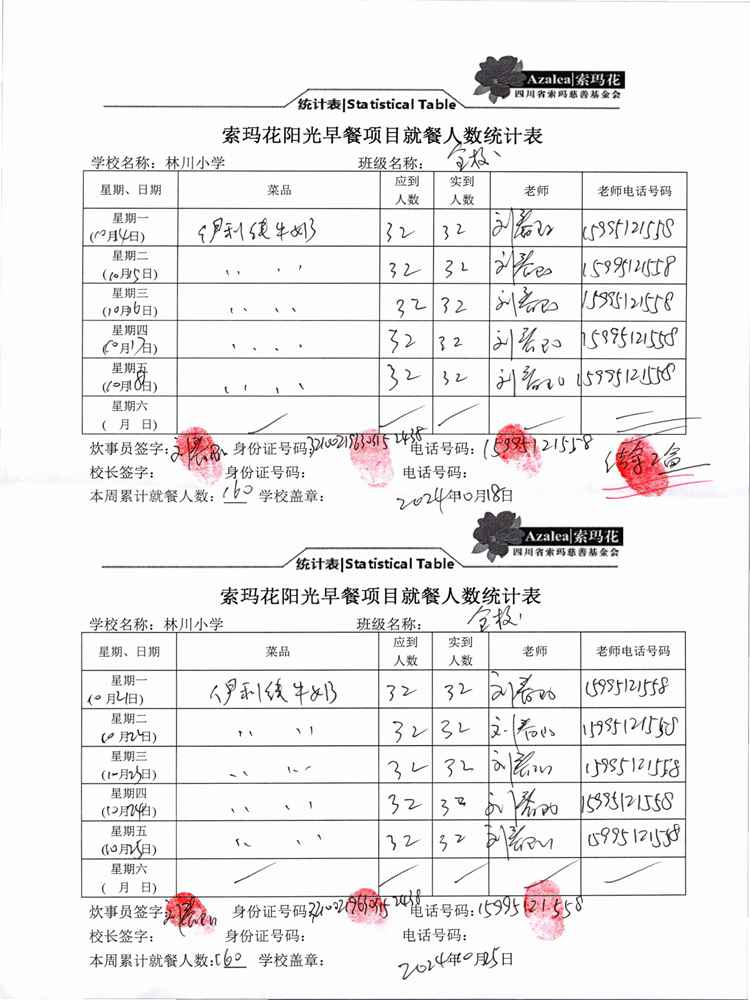 Azalea|索玛花
四川省索玛慈善基金会
统计表|Statistical Table
索玛花阳光早餐项目就餐人数统计表
学校名称：林川小学 班级名称：全校
星期、日期 菜品 应到人数 实到人数 老师 老师电话号码
星期一 (10月14日) 伊利纯牛奶 32 32 刘 15995121558
星期二 (10月15日) 〃 〃 32 32 刘 15995121558
星期三 (10月16日) 〃 〃 32 32 刘 15995121558
星期四 (10月17日) 〃 〃 32 32 刘 15995121558
星期五 (10月18日) 〃 〃 32 32 刘 15995121558
星期六 (月 日)
炊事员签字：刘 身份证号码： 电话号码：15995121558
校长签字： 身份证号码： 电话号码：
本周累计就餐人数：160 学校盖章： 2024年10月18日
Azalea|索玛花
四川省索玛慈善基金会
统计表|Statistical Table
索玛花阳光早餐项目就餐人数统计表
学校名称：林川小学 班级名称：全校
星期、日期 菜品 应到人数 实到人数 老师 老师电话号码
星期一 (10月21日) 伊利纯牛奶 32 32 刘 15995121558
星期二 (10月 日) 〃 〃 32 32 刘 15995121558
星期三 (10月23日) 〃 〃 32 32 刘 15995121558
星期四 (10月24日) 〃 〃 32 32 刘 15995121558
星期五 (10月25日) 〃 〃 32 32 刘 15995121558
星期六 (月 日)
炊事员签字：刘 身份证号码： 电话号码：15995121558
校长签字： 身份证号码： 电话号码：
本周累计就餐人数：160 学校盖章： 2024年10月25日